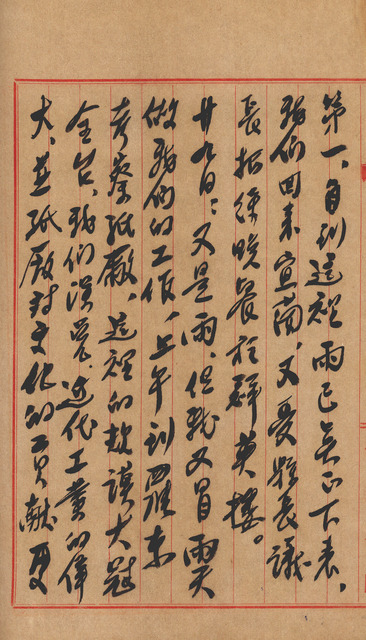 第一、自到這裡雨已下来，
我們回来宜蘭，又受縣長議
長招待晚餐於群英樓。
廿九日：又是雨，但我又冒雨天
做我們的工作，上午到羅東
考察紙廠，這裡的規模大冠
全台，我們深覺近代工業的偉
大，並紙廠對文化的貢獻更